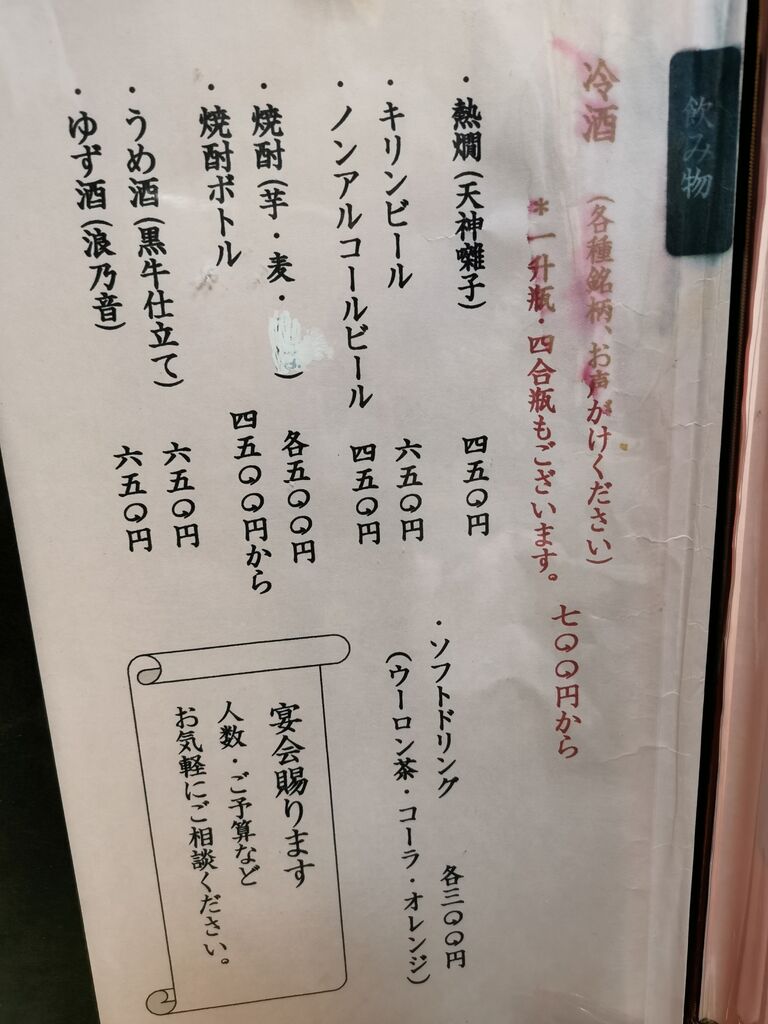 飲み物
冷酒 (各種銘柄、お声がけください)
*一升瓶・四合瓶もございます。 七〇〇円から
・熱燗(天神囃子) 四五〇円
・キリンビール 六五〇円
・ノンアルコールビール 四五〇円
・焼酎(芋・麦・ ) 各五〇〇円
・焼酎ボトル 四五〇〇円から
・うめ酒(黒牛仕立て) 六五〇円
・ゆず酒(浪乃音) 六五〇円
・ソフトドリング 各三〇〇円
(ウーロン茶・コーラ・オレンジ)
宴会賜ります
人数・ご予算など
お気軽にご相談ください。